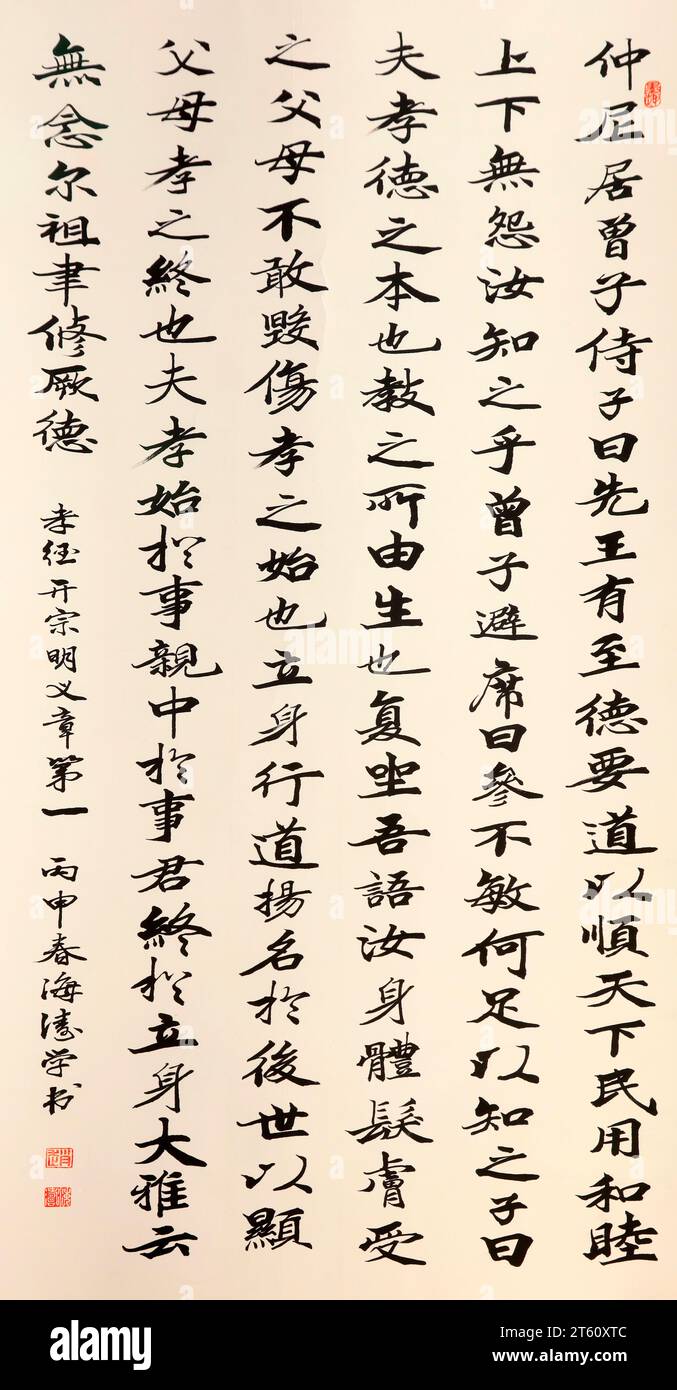 仲尼居曾子侍子曰先王有至德要道以順天下民用和睦
上下無怨汝知之乎曾子避席曰參不敏何足以知之子曰
夫孝德之本也教之所由生也复坐吾語汝身體髮膚受
之父母不敢毀傷孝之始也立身行道揚名於後世以顯
父母孝之終也夫孝始於事親中於事君終於立身大雅云
無念尔祖聿修厥德
孝经开宗明义章第一 丙申春海涛学书
alamy
Image ID: 2T60XTC
www.alamy.com